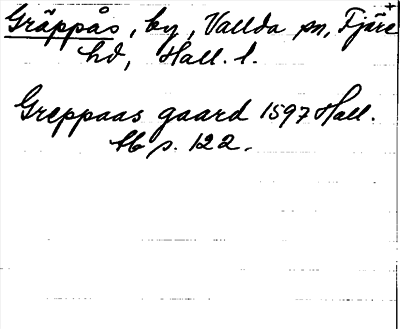 Gräppås, by, Vallda sn, Fjäre
hd, Hall. l.
Greppaas gaard 1597 Hall.
tb s. 122.